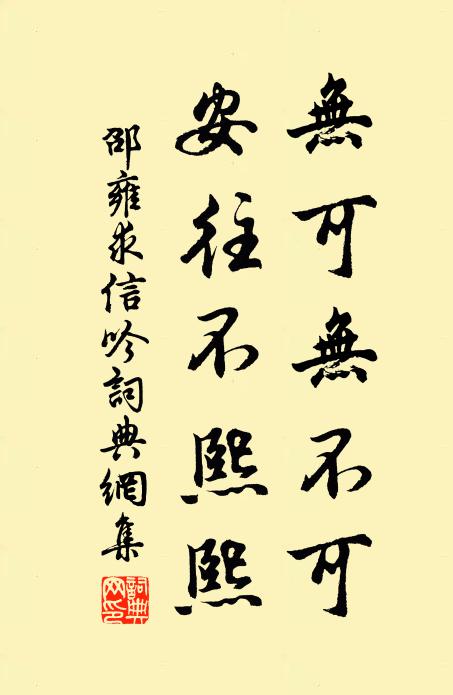 無可無不可
安往不熙熙
邵雍求信吟詞典網集
詞典
网印